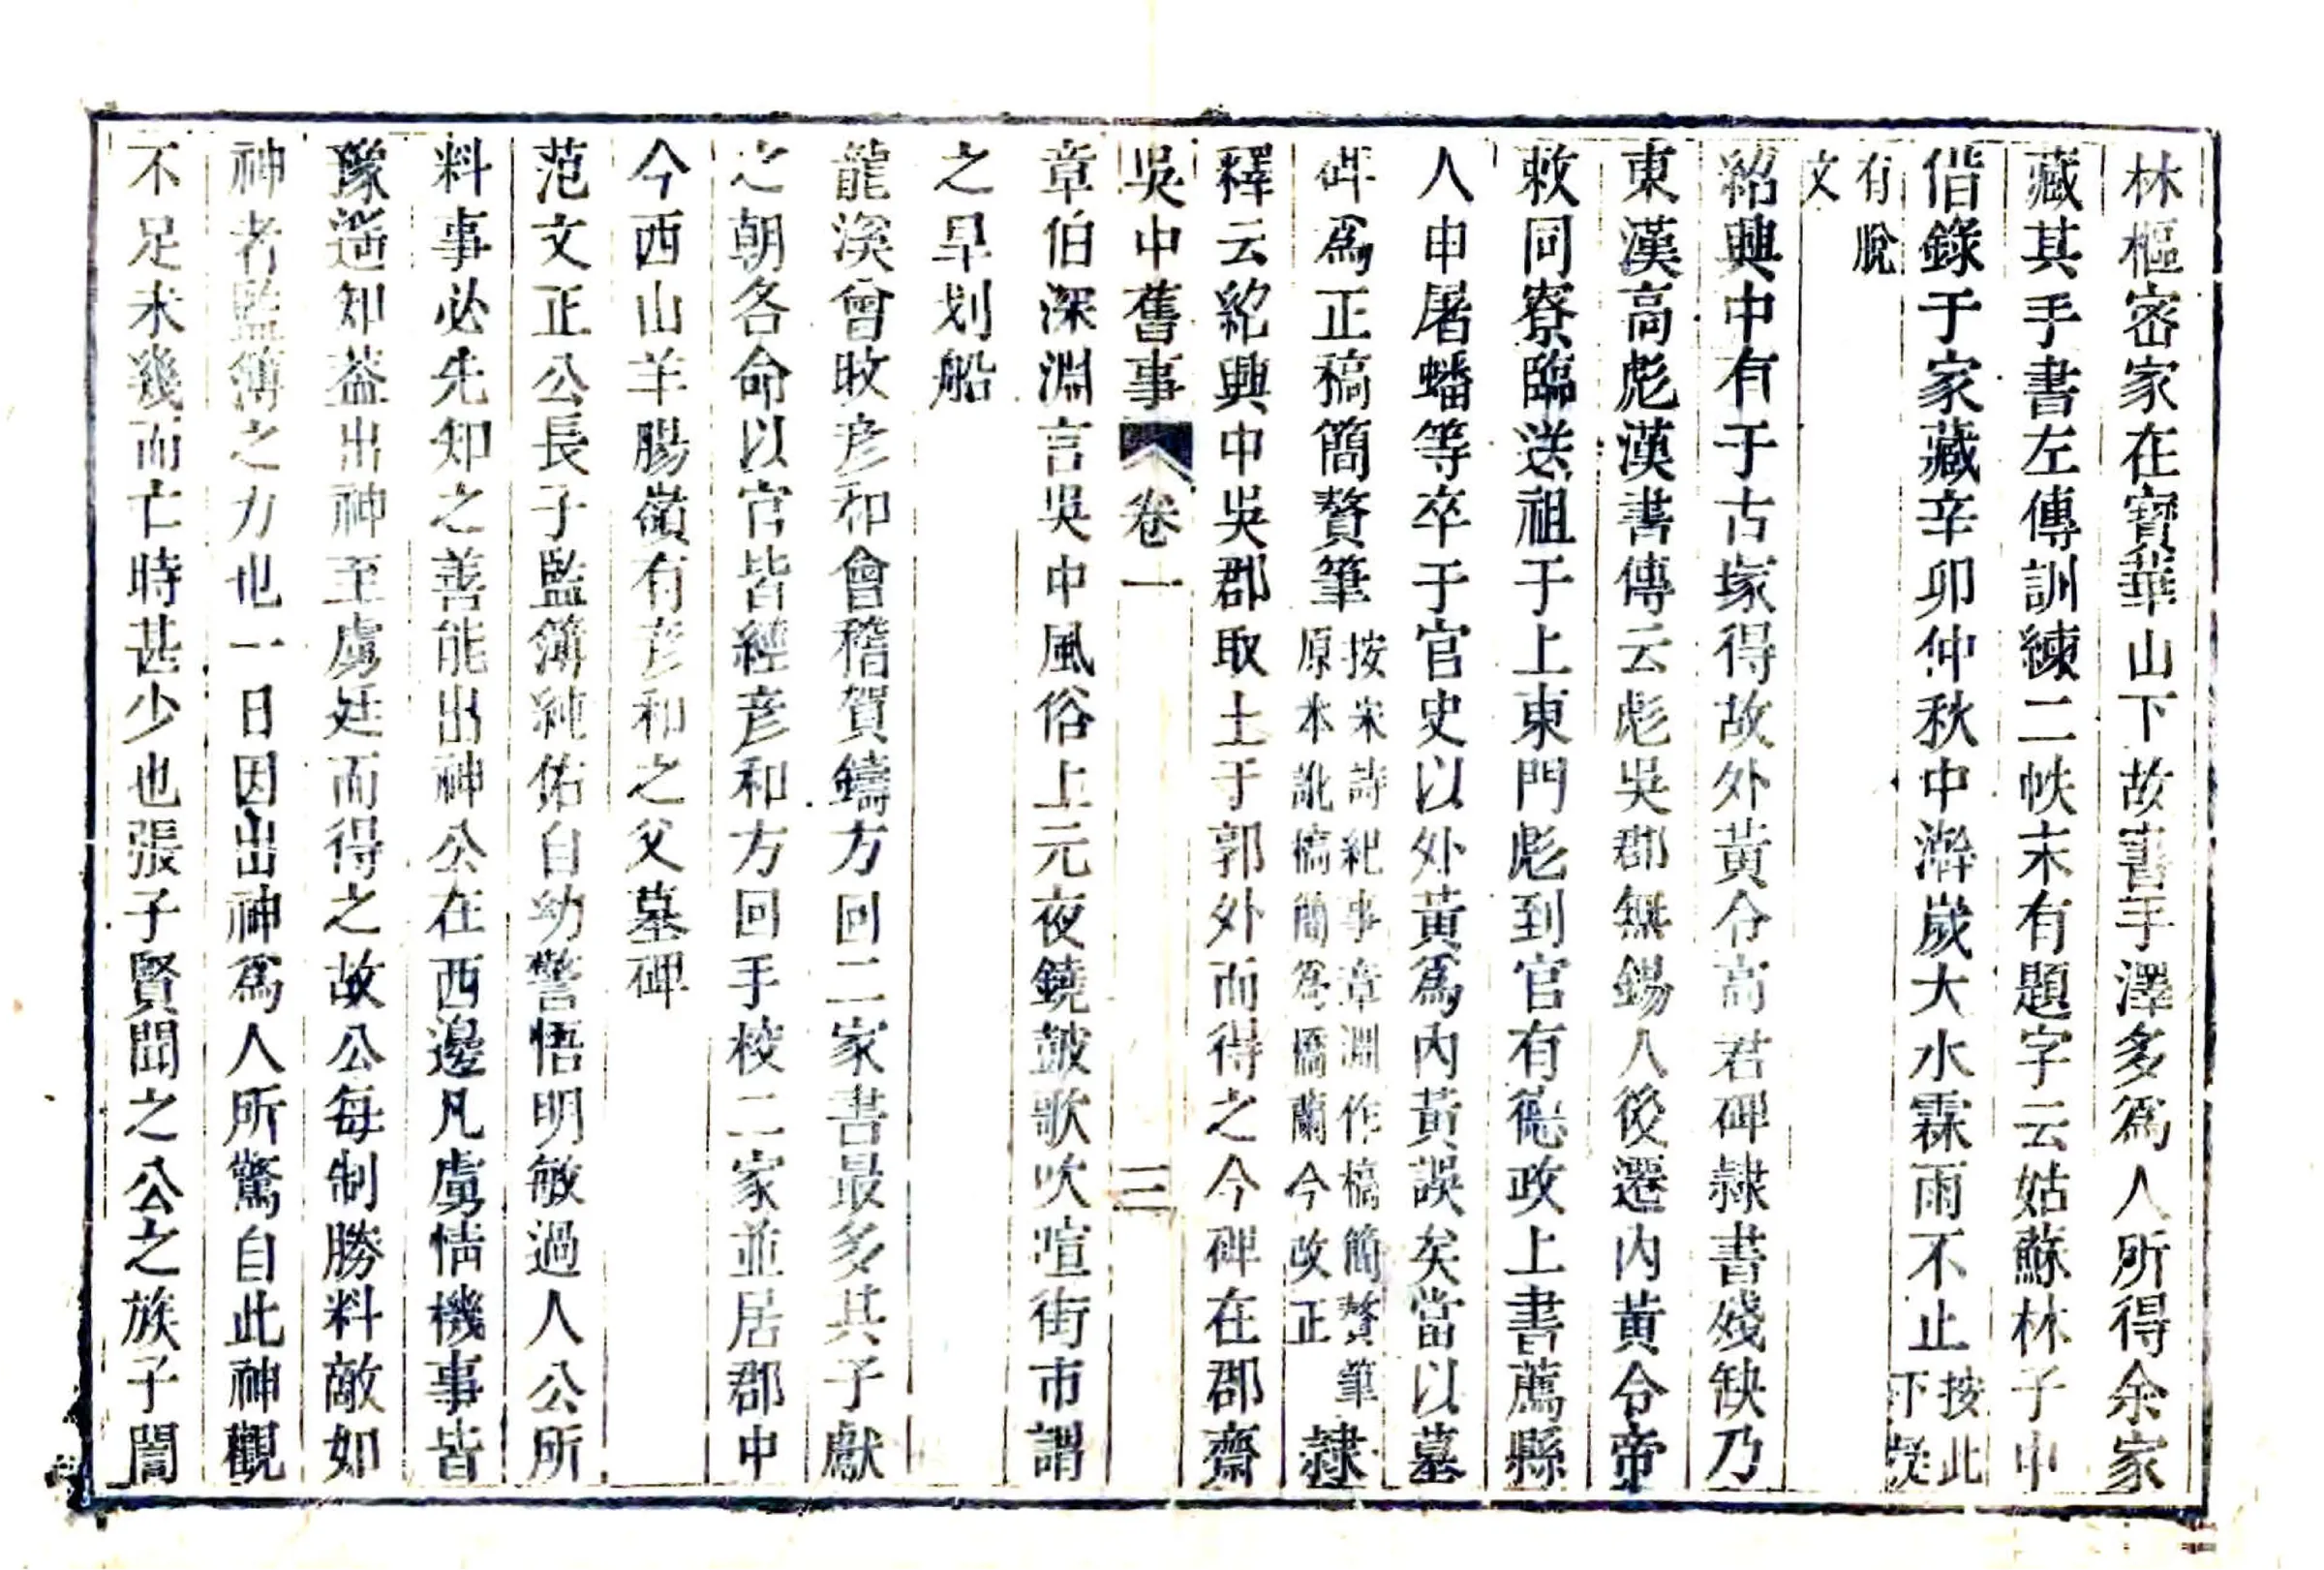 林樞密家在寶華山下故書手澤多爲人所得余家
藏其手書左傳訓練二帙末有題字云姑蘇林子中
偕錄于家藏辛卯仲秋中澣歲大水霖雨不止按此下疑
有脫文
紹興中有于古塚得故外黃令高君碑隷書殘缺乃
東漢高彪漢書傳云彪吳郡無錫人後遷內黃令帝
敕同寮臨送祖于上東門彪到官有德政上書薦縣
人申屠蟠等卒于官史以外黃爲內黃誤矣當以墓
碑爲正稿簡贅筆按宋詩紀事章淵作槁簡贅筆原本訛槁簡爲橋蘭今改正隷
釋云紹興中吳郡取土于郭外而得之今碑在郡齋
吳中舊事 卷一 三
章伯深淵言吳中風俗上元夜鐃鼓歌吹喧街市謂
之旱划船
龍溪曾旼彦和會稽賀鑄方回二家書最多其子獻
之朝各命以官皆經彦和方回手校二家並居郡中
今西山羊腸嶺有彦和之父墓碑
范文正公長子監簿純佑自幼警悟明敏過人公所
料事必先知之善能出神公在西邊凡虜情機事皆
豫遥知葢出神至虜廷而得之故公每制勝料敵如
神者監簿之力也一日因出神爲人所驚自此神觀
不足未幾而亡時甚少也張子賢聞之公之族子誾